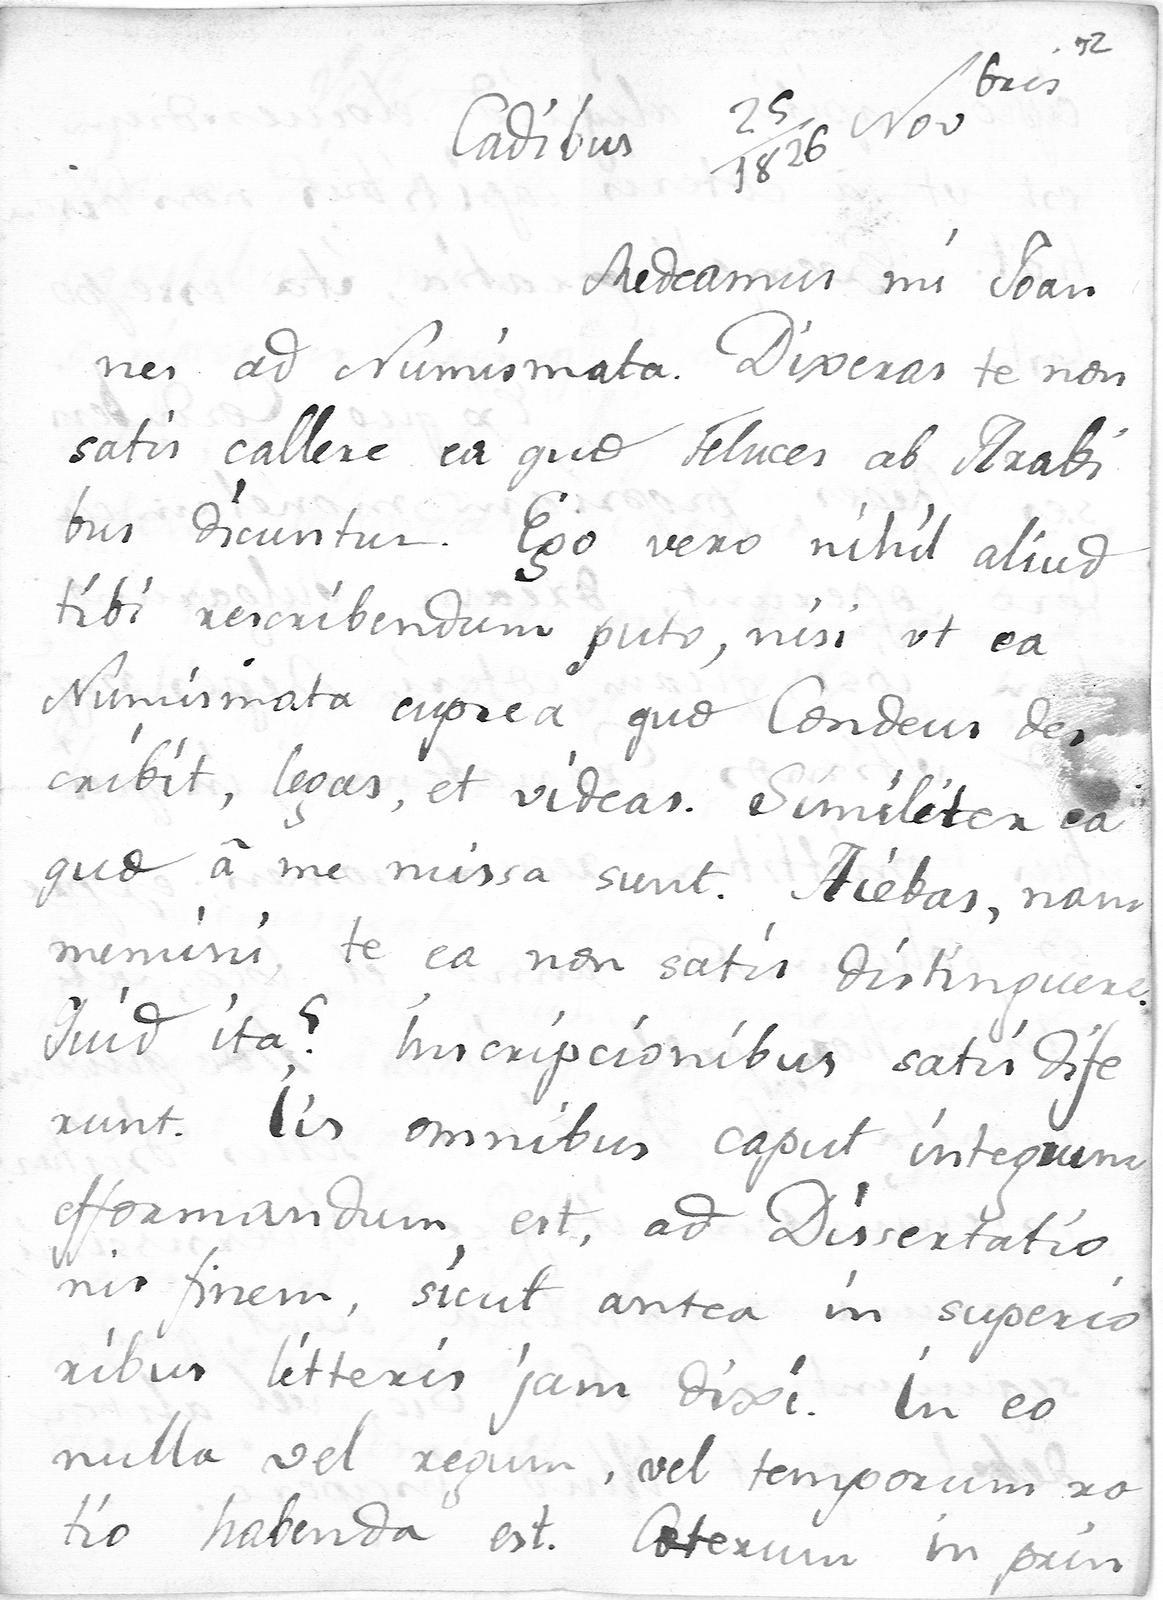 52
Cadibus 25/1826 Novbris
Redeamus mi Joan
nes ad Numismata. Dixeras te non
satis callere ea quæ Feluces ab Arabi
bus dicuntur. Ego vero nihil aliud
tibi rescribendum puto, nisi ut ea
Numismata cuprea quæ Condeus des
cribit, legas, et videas. Similiter ea
quæ â me missa sunt. Aiebas, nam
memini, te ea non satis distinguere.
Quid ita? Inscripcionibus satis dife
runt. Iis omnibus caput integrum
efformandum est, ad Dissertatio
nis finem, sicut antea in superio
ribus litteris jam dixi. In eo
nulla vel regum, vel temporum ra
tio habenda est. Cæterum in prin